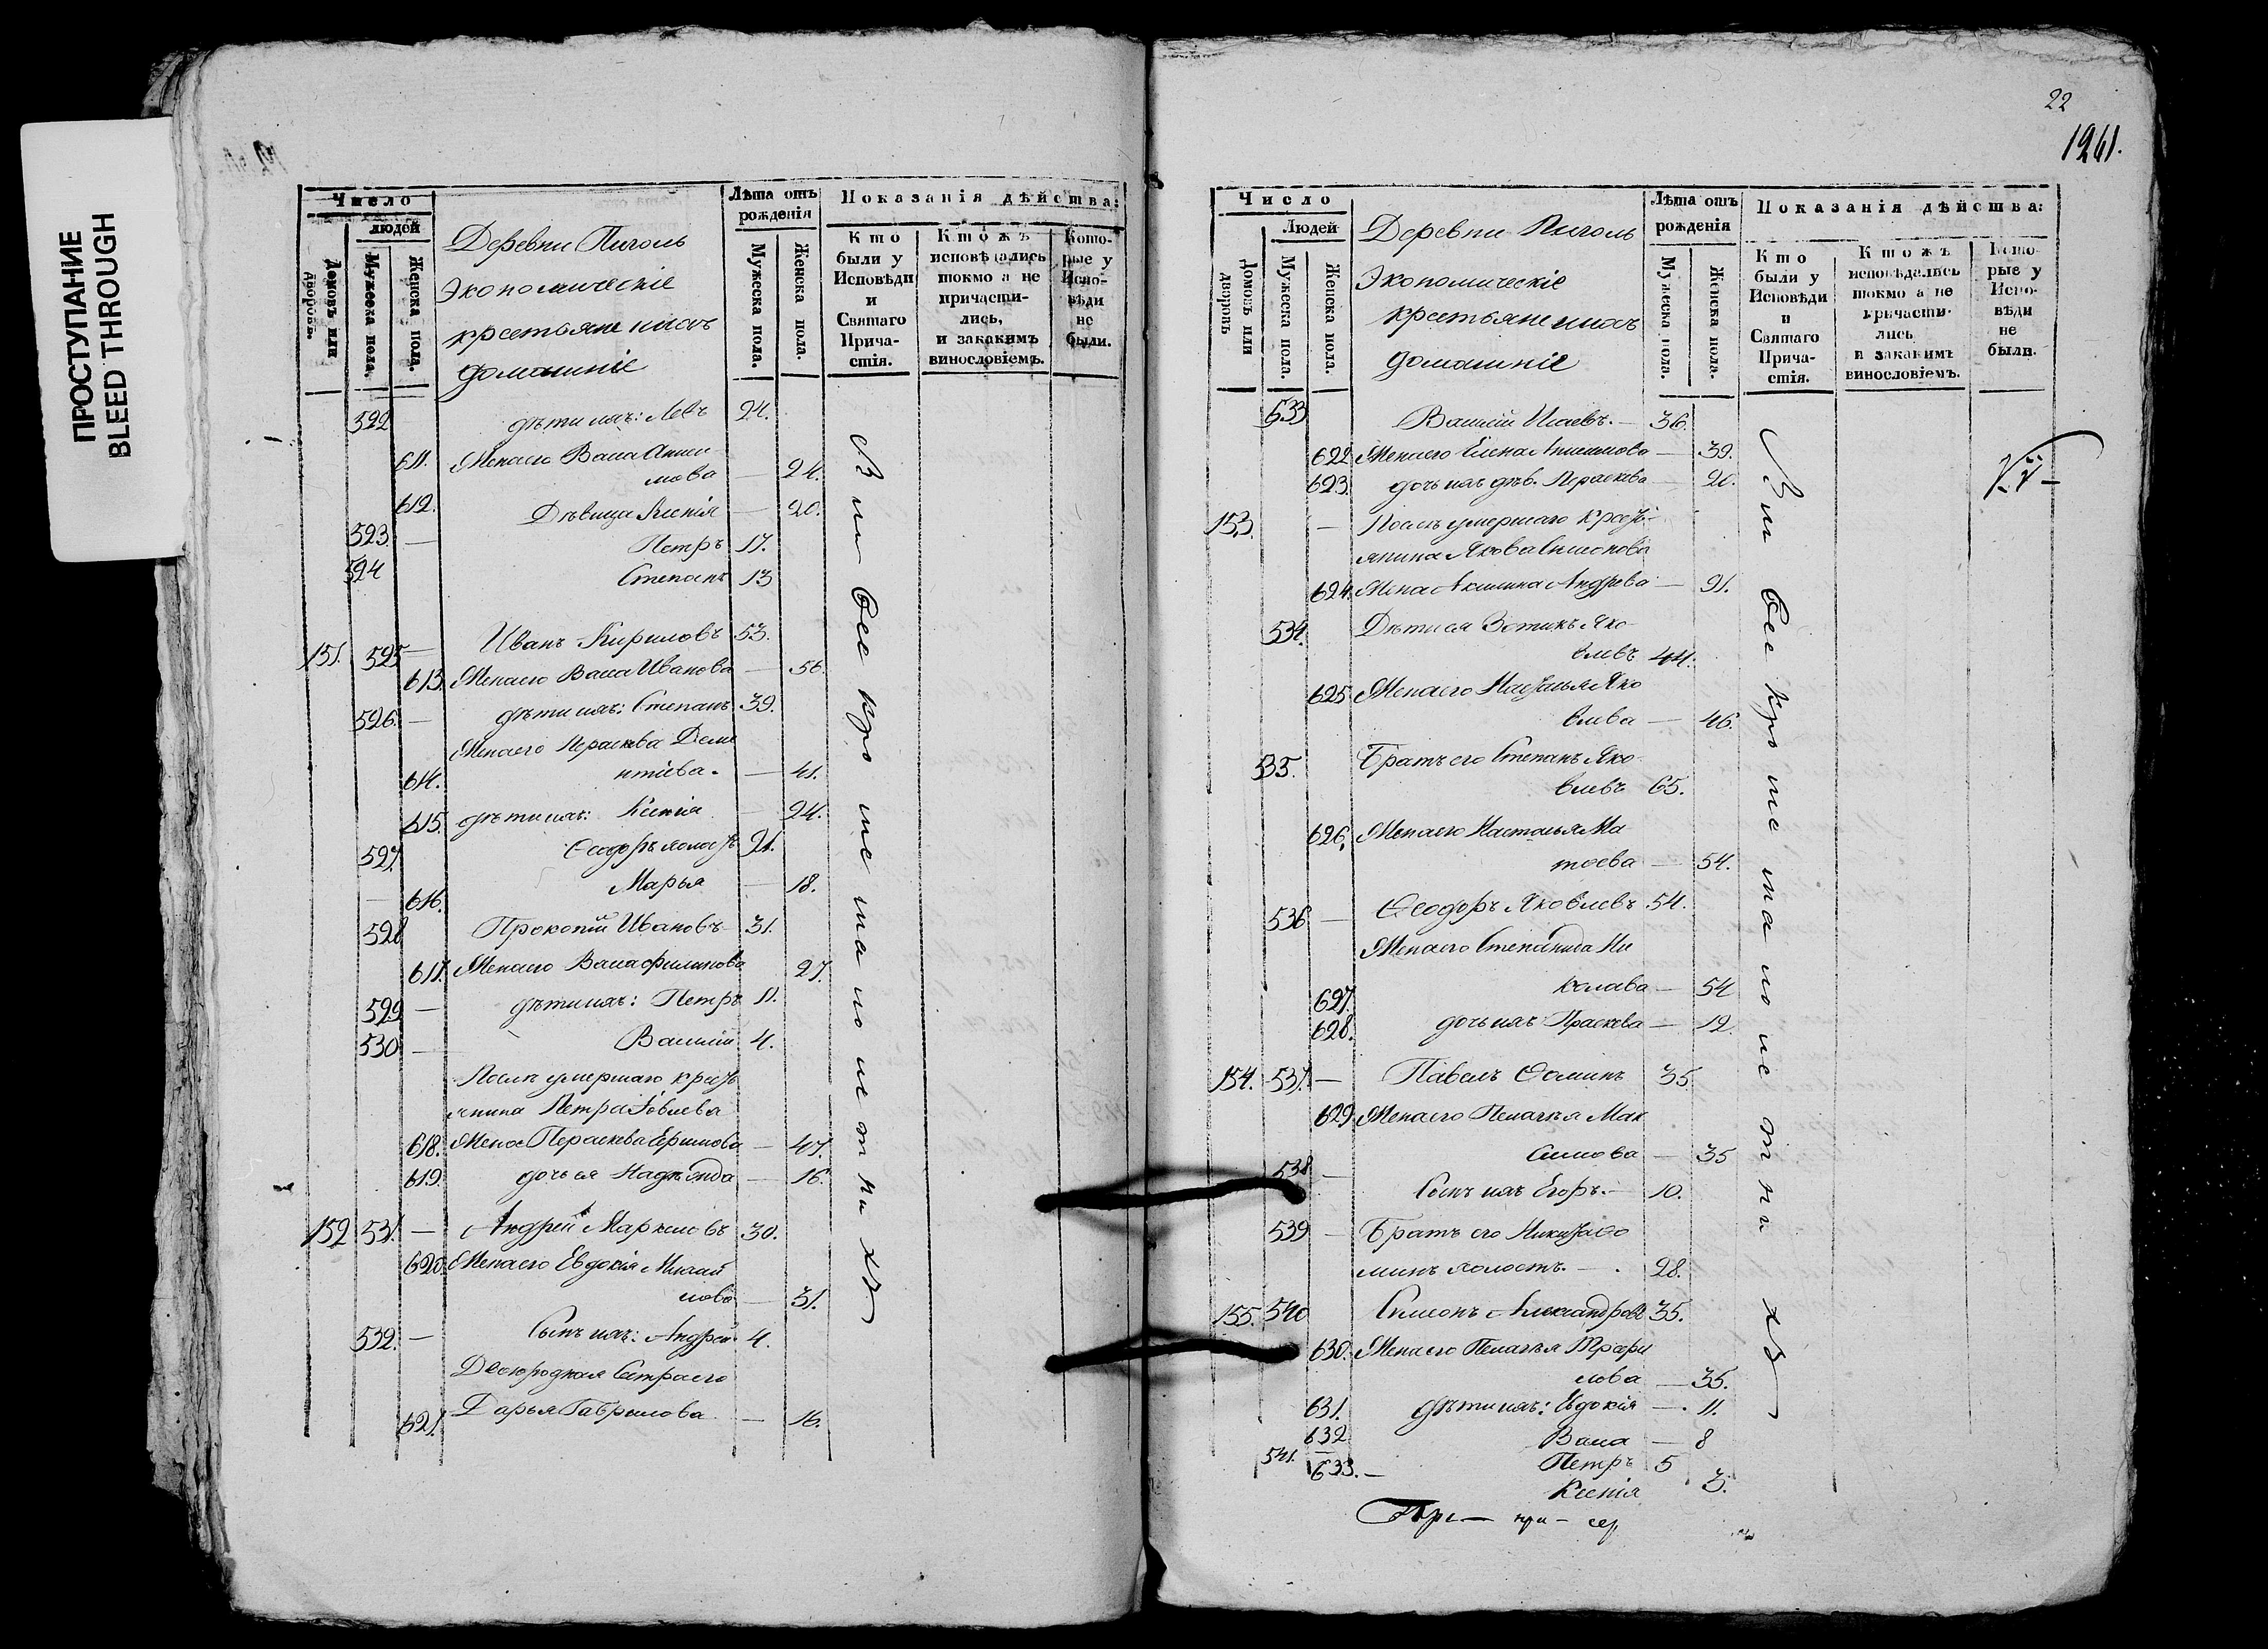 ПРОСТУПАНИЕ
BLEED THROUGH
Число
людей
Домовъ или дворовъ.
Мужеска пола.
Женска пола.
Деревни Пиголь
Экономическіе
крестьяне ихъ
домашніе
Лѣта отъ рожденія
Мужеска пола.
Женска пола.
Показанія дѣйства:
Кто были у Исповѣди и Святаго Причастія.
Ктожъ исповѣдались токмо а не причастились, и закакимъ винословіемъ.
Которые у Исповѣди не были.
522 дѣти ихъ: Левъ 24.
611. Жена его Васа
мова — 24.
612. Дѣвица Ксенія — 20.
523 — Петръ 17.
524 Степанъ 13
151. 525 — Иванъ Кириловъ 53.
613. Жена его Васа Иванова — 56.
526. — дѣти ихъ: Степанъ 39.
Жена его Параскева Деме
614. нтіева. — 41.
615. дѣти ихъ: Ксенія — 24.
527. Ѳеодоръ холостъ 21.
616. Марья — 18.
528 Прокопій Ивановъ 31.
617. Жена его Васа Филипова 27.
529 — дѣти ихъ: Петръ 11.
530 — Василій 4.
Послѣ умершаго кресть
янина Петра Іовлева
618. Жена Параскева Ефимова — 47.
619. дочь ея Надѣжда — 16.
152 531. — Андрей Маркеловъ 30.
620. Жена его Евдокія Михай
лова — 31.
532. — Сынъ ихъ: Андрей 4.
Двоюродная Сестра его
621. Дарья Гаврилова — 16.
Сіи все кромѣ малолетнихъ
22
1241.
Число
Людей
Домовъ или дворовъ
Мужеска пола.
Женска пола.
Деревни Пиголь
Экономическіе
крестьяне ихъ
домашніе
Лѣта отъ рожденія
Мужеска пола.
Женска пола.
Показанія дѣйства:
Кто были у Исповѣди и Святаго Причастія.
Ктожъ исповѣдались токмо а не причастись и закакимъ винословіемъ.
Которые у Исповѣди не были.
533 Василій Исаевъ. — 36.
622 Жена его Елена — 39.
623. дочь ихъ дѣв. Параскева — 20.
153. — Послѣ умершаго кресть-
янина Якова Симонова
624. Жена Акилина Андрева — 91.
534. Дѣти ея Зотикъ Яко
влевъ 44.
625 Жена его Наталья Яко
влева — 46.
535. Братъ его Степанъ Яко-
влевъ 65.
626. Жена его Настасья Ма
твева — 54.
536 — Ѳеодоръ Яковлевъ 54.
Жена его Степанида Ни
627. колава — 54
628. дочь ихъ Праскева — 12.
154. 537. — Павелъ Ѳоминъ 35
629 Жена его Пелагея Мак
симова — 35
538 — Сынъ ихъ Егоръ. — 10.
539 — Братъ его Никита Ѳо
минъ холостъ. — 28.
155. 540 Симеонъ Александровъ 35.
630. Жена его Пелагея Трофи
мова — 35.
631. дѣти ихъ: Евдокія — 11.
632 Васа — 8
541. Петръ 5
633. — Ксенія 3.
Сіи все кромѣ малолетнихъ